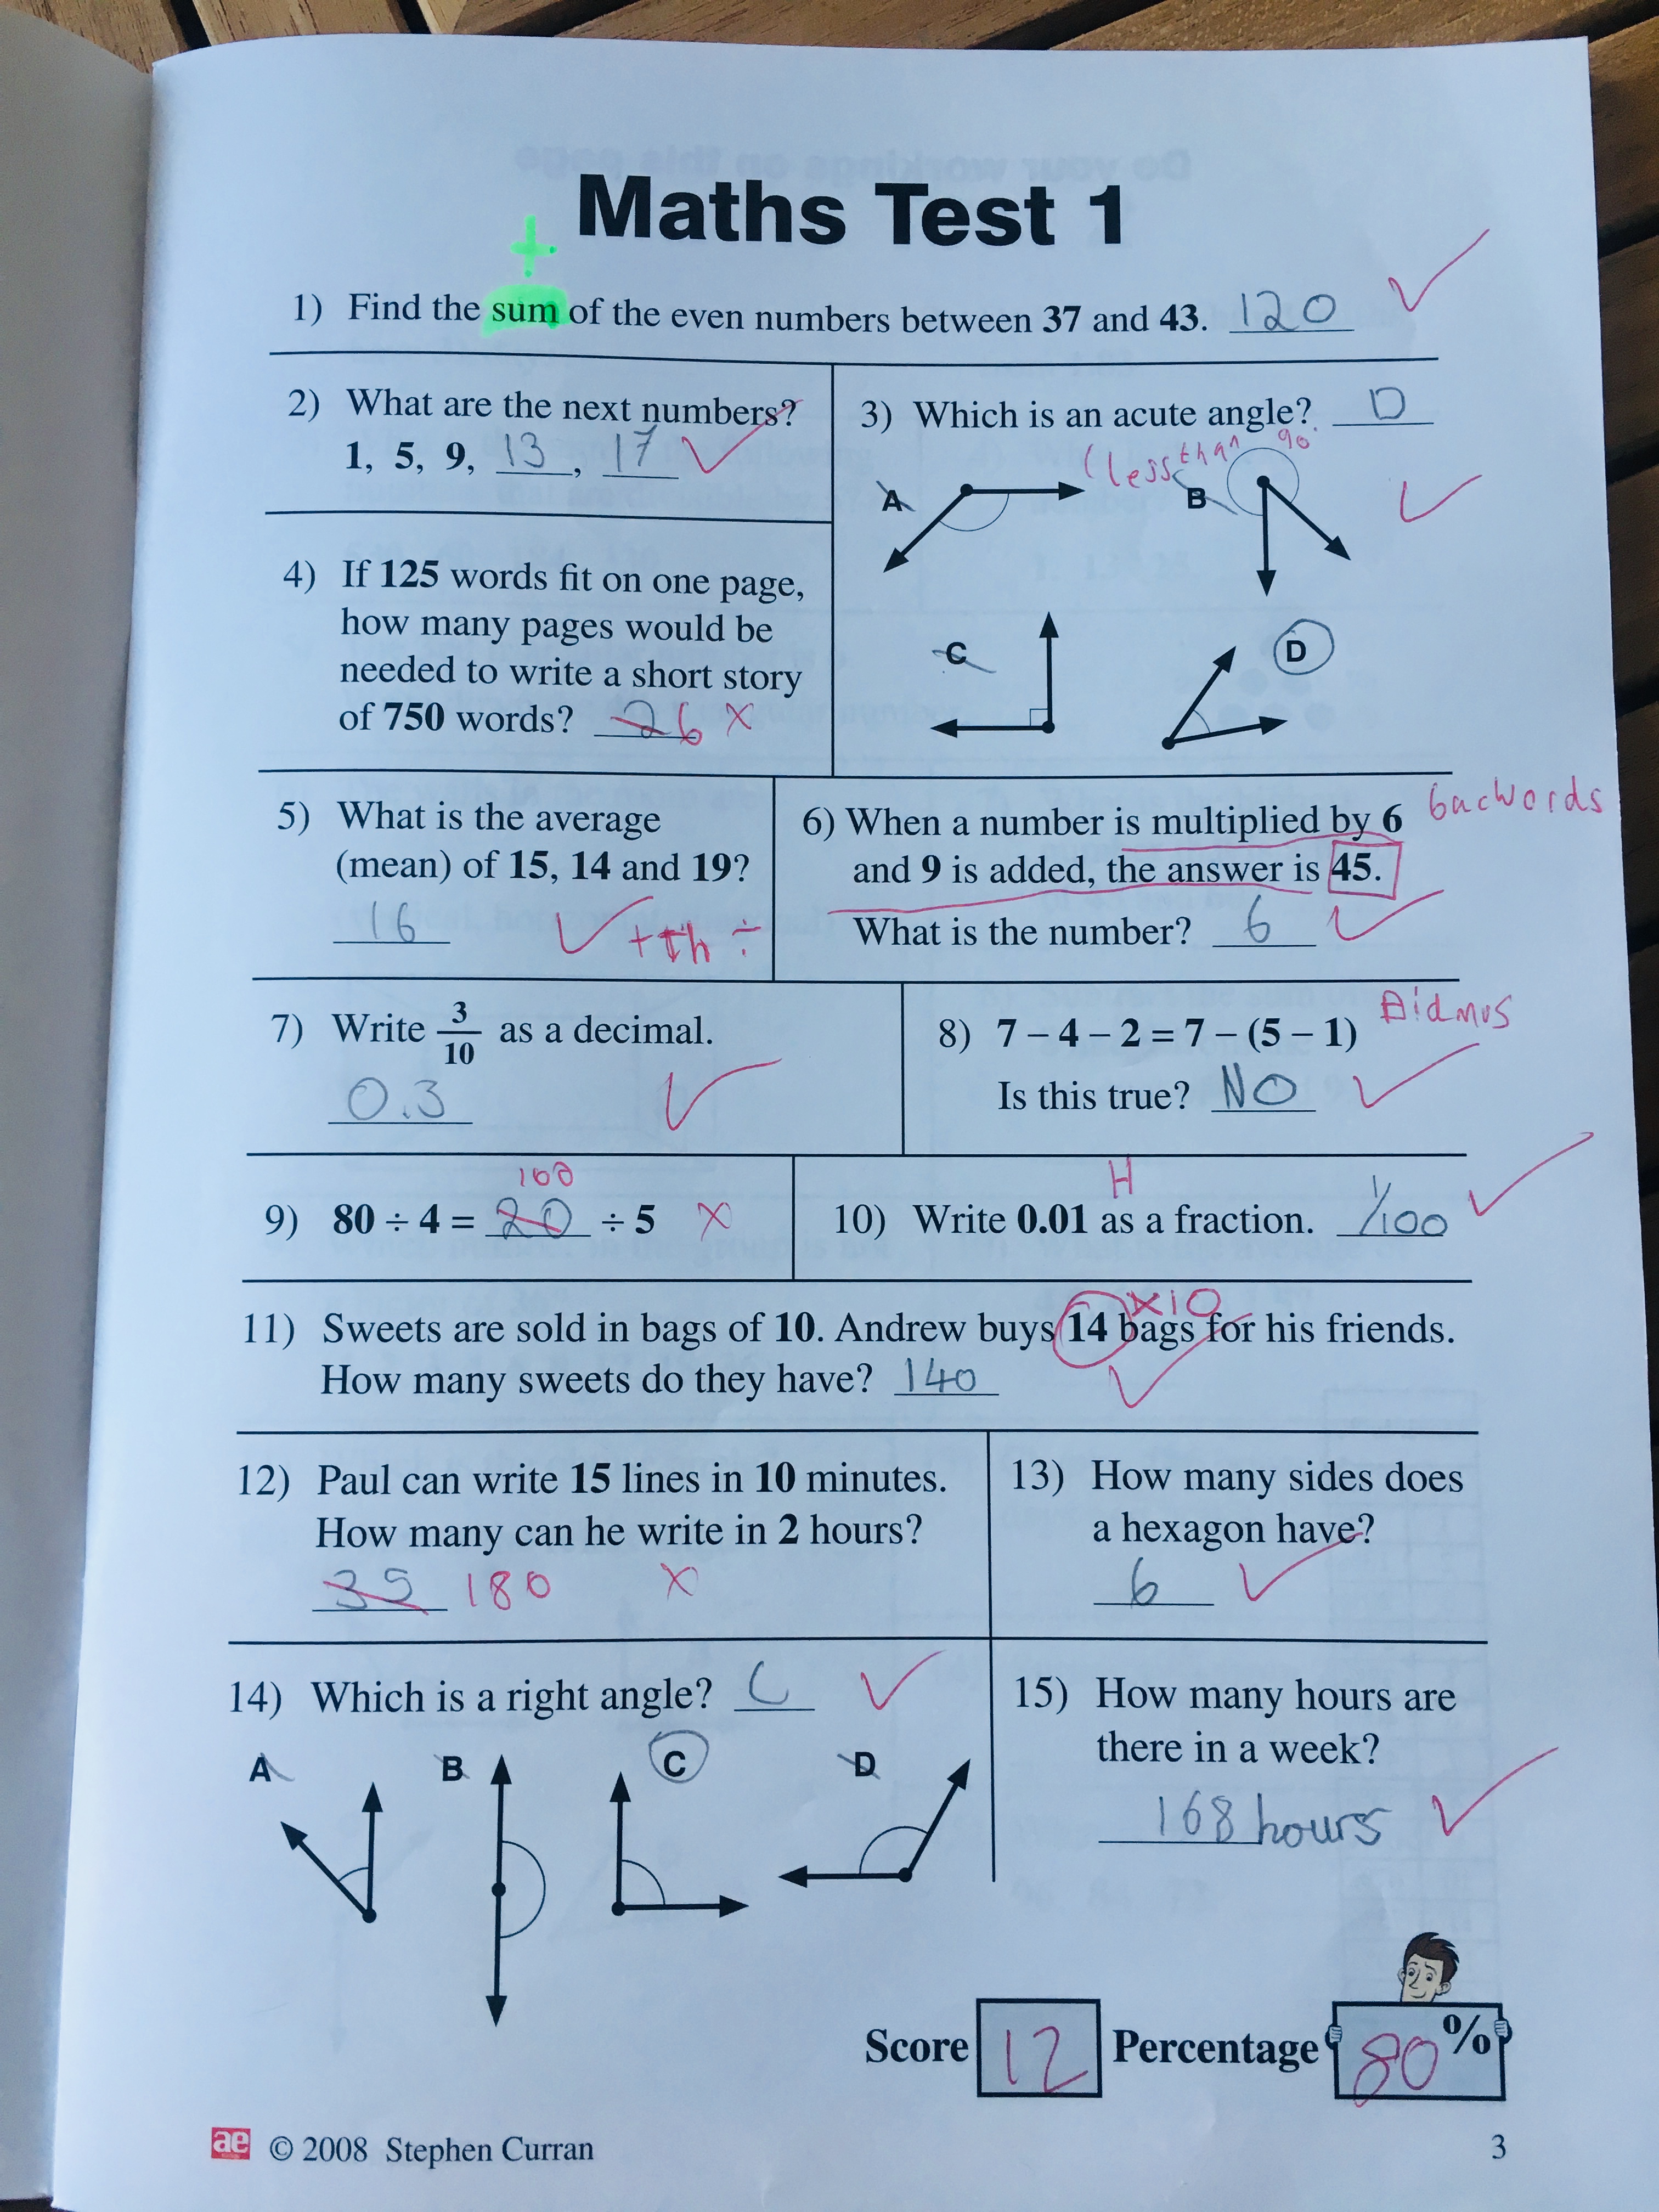 Maths Test 1
+
1) Find the sum of the even numbers between 37 and 43. 120
2) What are the next numbers?
1, 5, 9, 13, 17
3) Which is an acute angle? D
(less than 90°
A
B
C
D
4) If 125 words fit on one page,
how many pages would be
needed to write a short story
of 750 words? 2 6 X
5) What is the average
(mean) of 15, 14 and 19?
16
6) When a number is multiplied by 6 bacwords
and 9 is added, the answer is 45.
What is the number? 6
7) Write 3/10 as a decimal.
0.3
8) 7 – 4 – 2 = 7 – (5 – 1) Bidmus
Is this true? NO
100
9) 80 ÷ 4 = 20 ÷ 5 X
H
10) Write 0.01 as a fraction. 1/100
x10
11) Sweets are sold in bags of 10. Andrew buys 14 bags for his friends.
How many sweets do they have? 140
12) Paul can write 15 lines in 10 minutes.
How many can he write in 2 hours?
35 180 X
13) How many sides does
a hexagon have?
6
14) Which is a right angle? C
A B C D
15) How many hours are
there in a week?
168 hours
Score 12 Percentage 80 %
ae © 2008 Stephen Curran
3